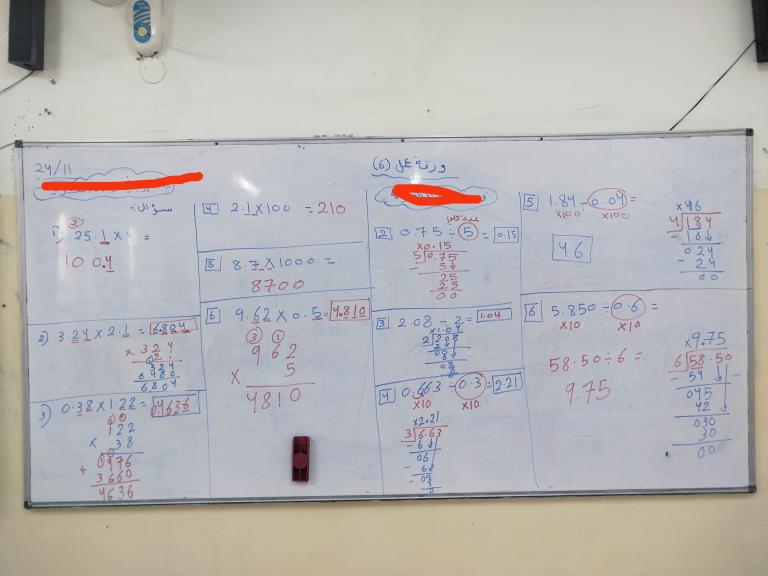 24/11
سؤال:
1) 25.1 × =
100.4
2) 3.24 × 2.1 = 6.804
× 324
21
324
6480
6804
3) 0.38 × 1.22 = 0.4636
122
× 38
+ 0976
3660
4636
4 2.1 × 100 = 210
5 8.7 × 1000 =
8700
6 9.62 × 0.5 = 4.810
3 1
962
× 5
4810
ورقة عمل (6)
2 0.75 ÷ 5 = 0.15
×0.15
5 0.75
- 5
25
25
00
3 2.08 ÷ 2 = 1.04
×1.04
2 2.08
08
08
4 0.663 ÷ 0.3 = 2.21
×10 ×10
×2.21
3 6.63
- 6
06
- 6
03
0
5 1.84 ÷ 0.04 =
×100 ×100
46
×46
4 184
- 16
024
- 24
00
6 5.850 ÷ 0.6 =
×10 ×10
58.50 ÷ 6 =
9.75
×9.75
6 58.50
- 54
045
42
030
30
00